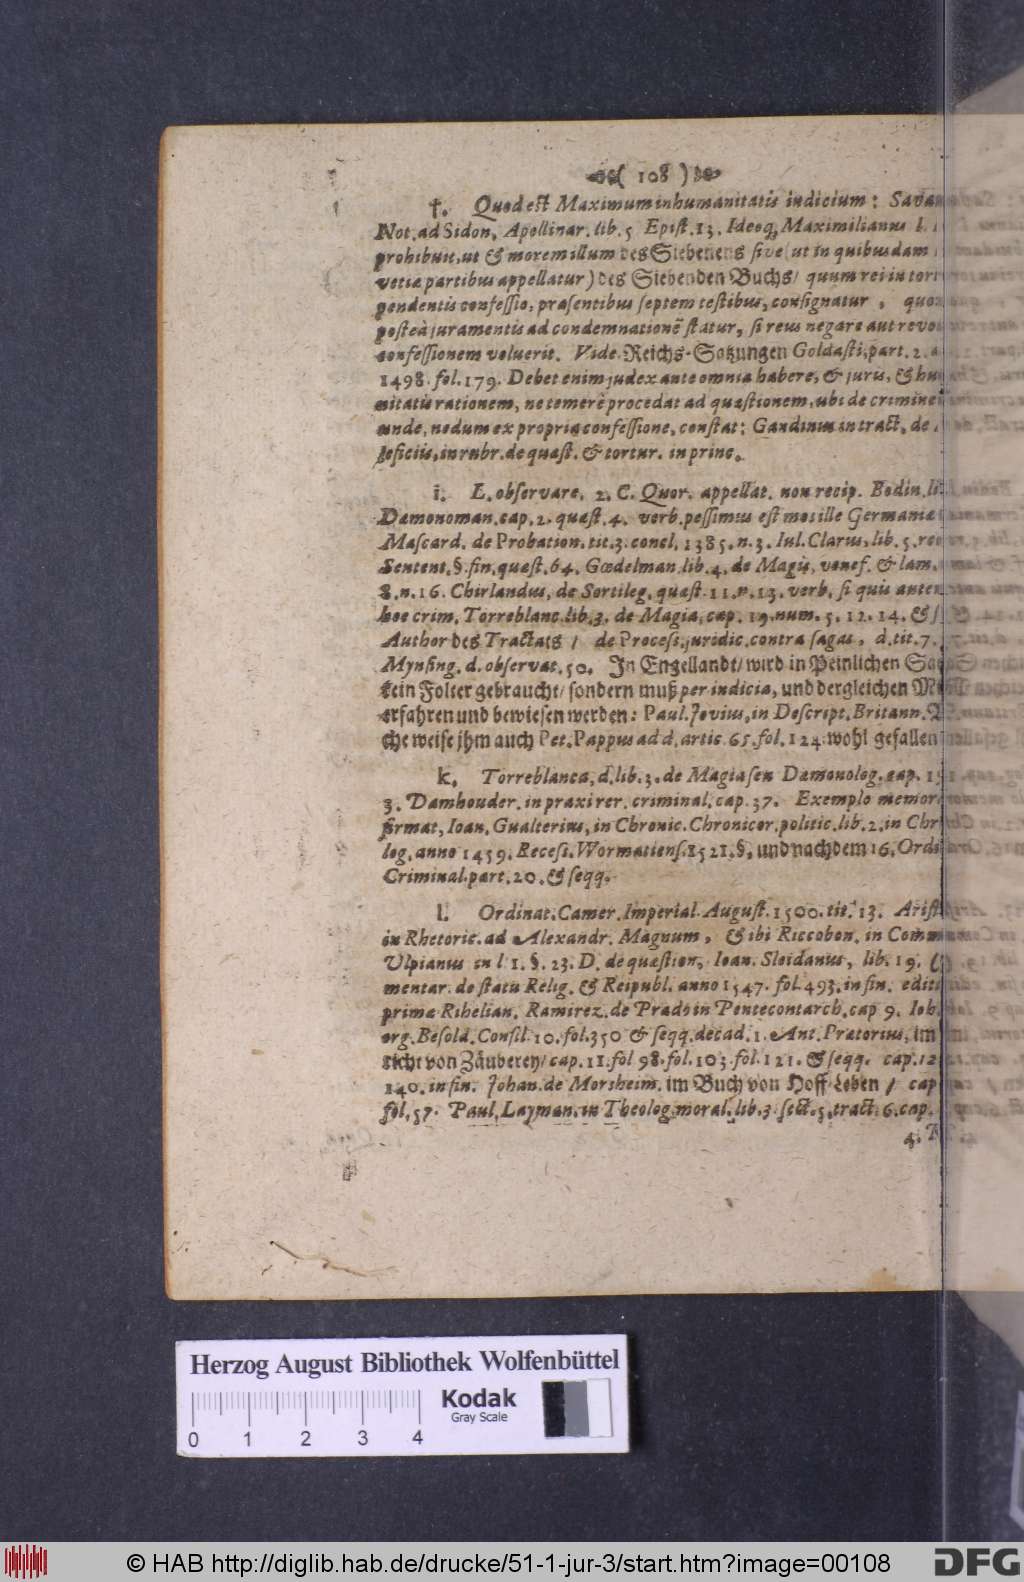 ( 108 )
†. Quod est Maximum inhumanitatis indicium: Savar
Not. ad Sidon, Apollinar. lib. 5 Epist. 13. Ideoq; Maximilianus l.
prohibuit, ut & morem illum des Siebenens sive (ut in quibusdam
vetiæ partibus appellatur) des Siebenden Buchs / quum rei in tor
pendentis confessio, præsentibus septem testibus, consignatur, quo
posteà juramentis ad condemnationẽ statur, si reus negare aut revo
confessionem voluerit. Vide Reichs-Satzungen Goldasti, part. 2.
1498. fol. 179. Debet enim judex ante omnia habere, & juris, & hu
nitatis rationem, ne temerè procedat ad quæstionem, ubi de crimine
unde, nedum ex propria confessione, constat: Gandinus in tract. de
leficiis, in rubr. de quæst. & tortur. in princ.
i. L. observare. 2. C. Quor. appellat. non recip. Bodin. li
Dæmonoman. cap. 2. quæst. 4. verb. pessimus est mos ille Germaniæ
Mascard. de Probation. tit. 3. concl. 1385. n. 3. Iul. Clarus, lib. 5. re
Sentent. §. fin. quæst. 64. Gœdelman. lib. 4. de Magis, venef. & lam.
8. n. 16. Chirlandus, de Sortileg. quæst. 11. n. 13. verb. si quis autem
hoc crim. Torreblanc. lib. 3. de Magia, cap. 19. num. 5. 12. 14. &
Author des Tractats / de Process. juridic. contra sagas, d. tit. 7.
Mynsing. d. observat. 50. In Engellandt / wird in Peinlichen Sa
kein Folter gebraucht / sondern muß per indicia, und dergleichen
erfahren und bewiesen werden: Paul. Jovius, in Descript. Britann.
che weise jhm auch Pet. Pappus ad d. artic. 65. fol. 124. wohl gefallen
k. Torreblanca, d. lib. 3. de Magia seu Dæmonolog. cap.
3. Damhouder. in praxi rer. criminal. cap. 37. Exemplo memor
firmat, Ioan. Gualterius, in Chronic. Chronicor. politic. lib. 2. in Chr
log. anno 1459. Recess. Wormatiens. 1521. §. und nachdem 16. Ordi
Criminal. part. 20. & seqq.
l. Ordinat. Camer. Imperial. August. 1500. tit. 13. Arist
in Rhetoric. ad Alexandr. Magnum, & ibi Riccobon. in Comm
Ulpianus in l. 1. §. 23. D. de quæstion, Ioan. Sleidanus, lib. 19.
mentar. de statu Relig. & Reipubl. anno 1547. fol. 493. in fin. editi
primæ Rihelian. Ramirez. de Prado in Pentecontarch. cap 9. Ioh.
org. Besold. Consil. 10. fol. 350 & seqq. decad. 1. Ant. Prætorius, im
richt von Zäuberey / cap. 11. fol 98. fol. 103. fol. 121. & seqq. cap. 12
140. in fin. Johan. de Morsheim. im Buch von Hoff Leben / cap
fol. 57. Paul. Layman. in Theolog. moral. lib. 3. sect. 5. tract. 6. cap.
4.
Herzog August Bibliothek Wolfenbüttel
Kodak
Gray Scale
0 1 2 3 4
© HAB http://diglib.hab.de/drucke/51-1-jur-3/start.htm?image=00108
DFG